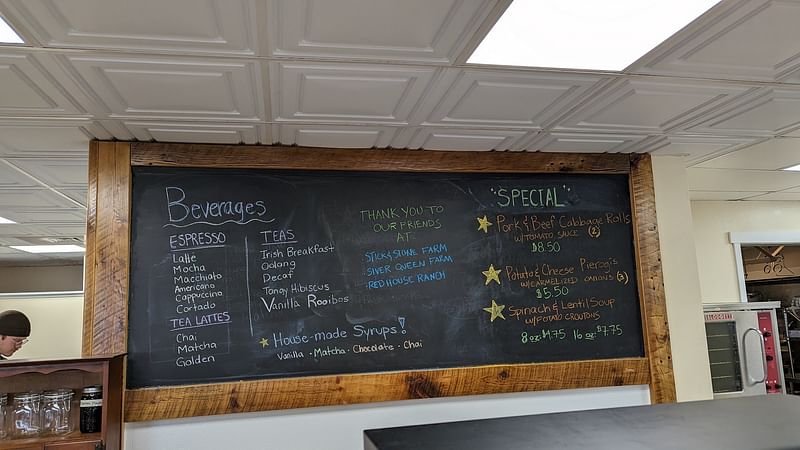 Beverages
ESPRESSO
Latte
Mocha
Macchiato
Americano
Cappuccino
Cortado
TEA LATTES
Chai
Matcha
Golden
TEAS
Irish Breakfast
Oolong
Decaf
Tangy Hibiscus
Vanilla Rooibos
House-made Syrups!
Vanilla • Matcha • Chocolate • Chai
THANK YOU TO
OUR FRIENDS
AT
STICK & STONE FARM
SILVER QUEEN FARM
RED HOUSE RANCH
"SPECIAL"
Pork & Beef Cabbage Rolls
W/TOMATO SAUCE (2)
$8.50
Potato & Cheese Pierogis
W/CARMELIZED ONIONS (3)
$5.50
Spinach & Lentil Soup
W/POTATO CROUTONS
8 oz: $4.75 16 oz: $7.75